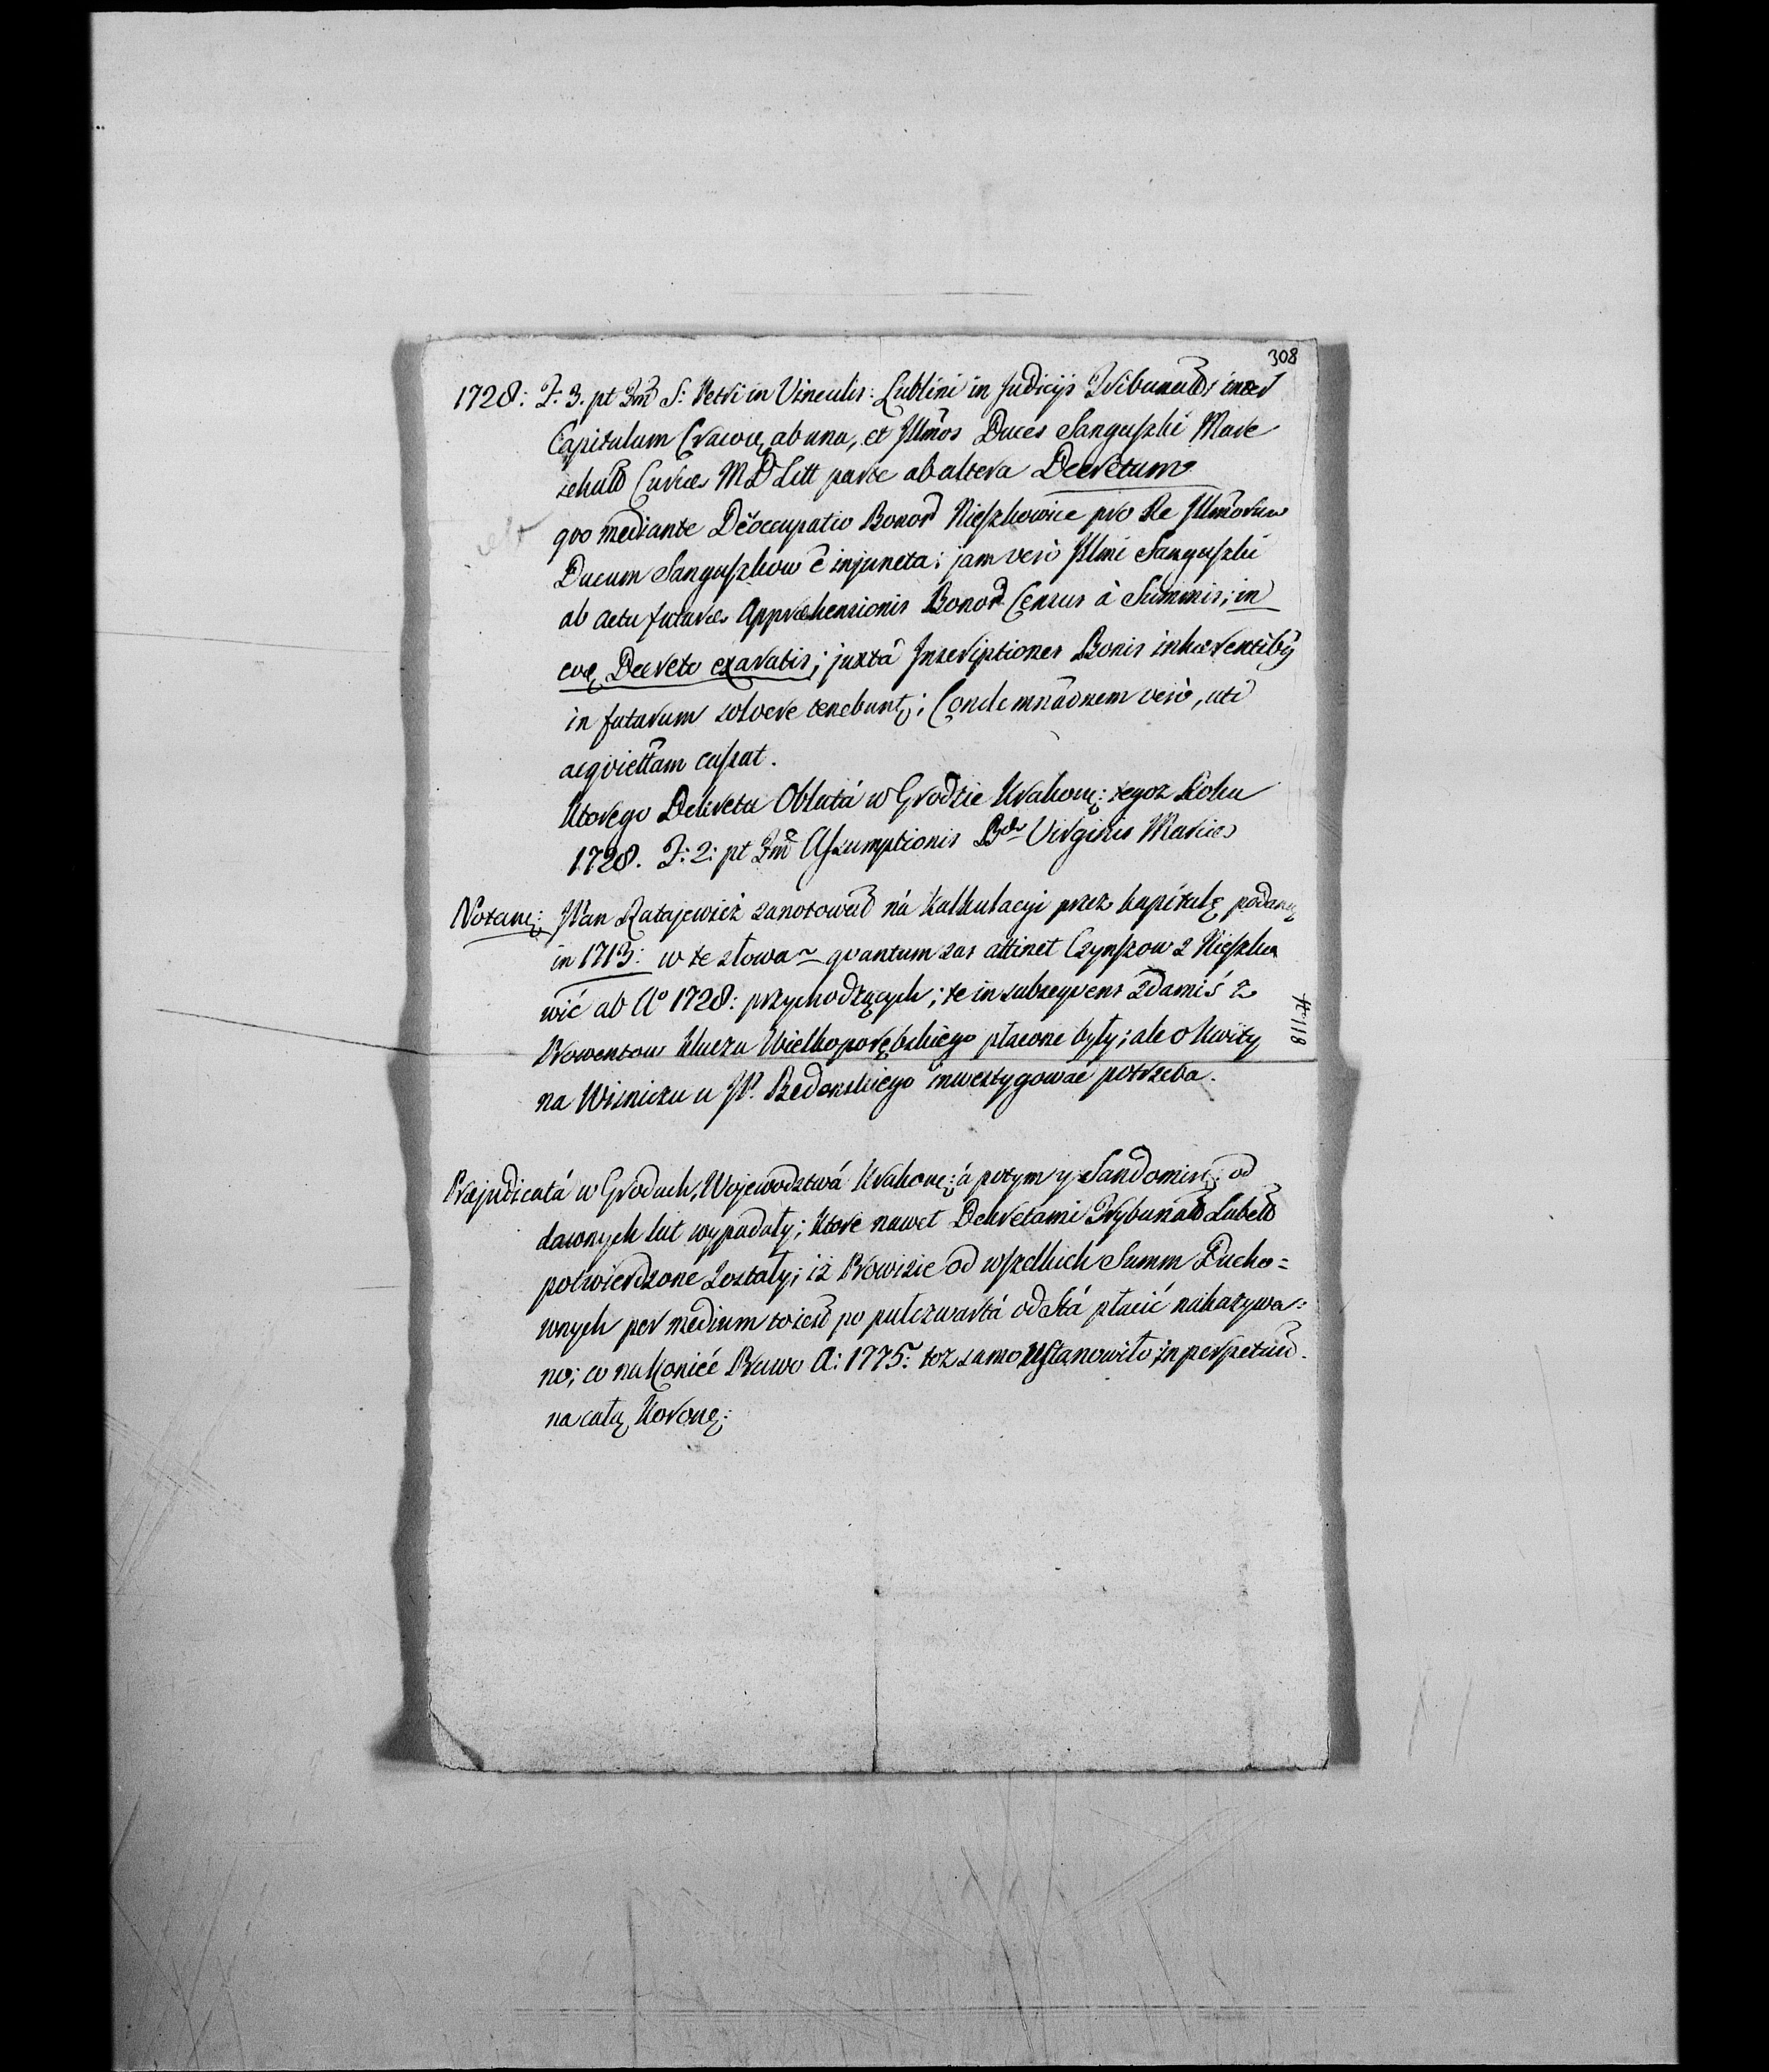 308
1728: F. 3. pt Fm̃ S: Petri in Vinculis: Lublini in Judicijs Tribunal͠s inter
Capitulum Cracov: ab una, et Illm̃os Duces Sanguszki Mare
schal͠ Curiæ M D Litt parte ab altera Decretum
quo mediante Deoccupatio Bonor͠ Nieszkowice pro Re Illm̃orum
Ducum Sanguszkow ẽ injuncta; jam verò Illm̃i Sanguszki
ab actu futuræ Appræhensionis Bonor͠ Census à Summis; in
eoq; Decreto exaratis; juxtà Inscriptiones Bonis inhærentibꝰ
in futurum solvere tenebunt͠; Condemnãonem verò, uti
acquiettam cassat.
Ktorego Dekretu Oblatá w Grodzie Krakow: tegoz Roku
1728. F: 2: pt Fm̃ Assumptionis B. Virginis Mariæ
Notanḑ: JPan Ratajewicz zanotował ná Kalkulacyi przez kapitułę podaney
in 1713: w te słowa ~ quantum zas attinet Czynszow z Nieszko
wić ab Aº 1728: przychodzących; te in subsequens zdamiś z
Prowentow Klucza Wielkoporębskiego płacone były; ale o Kwity
na Wisniczu u JP. Bedonskiego inwestygować potrzeba.
№ 118
Præjudicatá w Grodach, Wojewodztwá Krakow: á potym y Sandomirs: od
dawnych lat wypadały; ktore nawet Dekretami Trybunal͠ Lubel͠
potwierdzone zostały; iż Prowizie od wszelkich Summ Ducho=
wnych per medium toiest po pułczwartá odStá płacić nakazywa=
no; co nakoniec Prawo A: 1775: toz samo Ustanowiło in perpetuum
na całą Koronę: